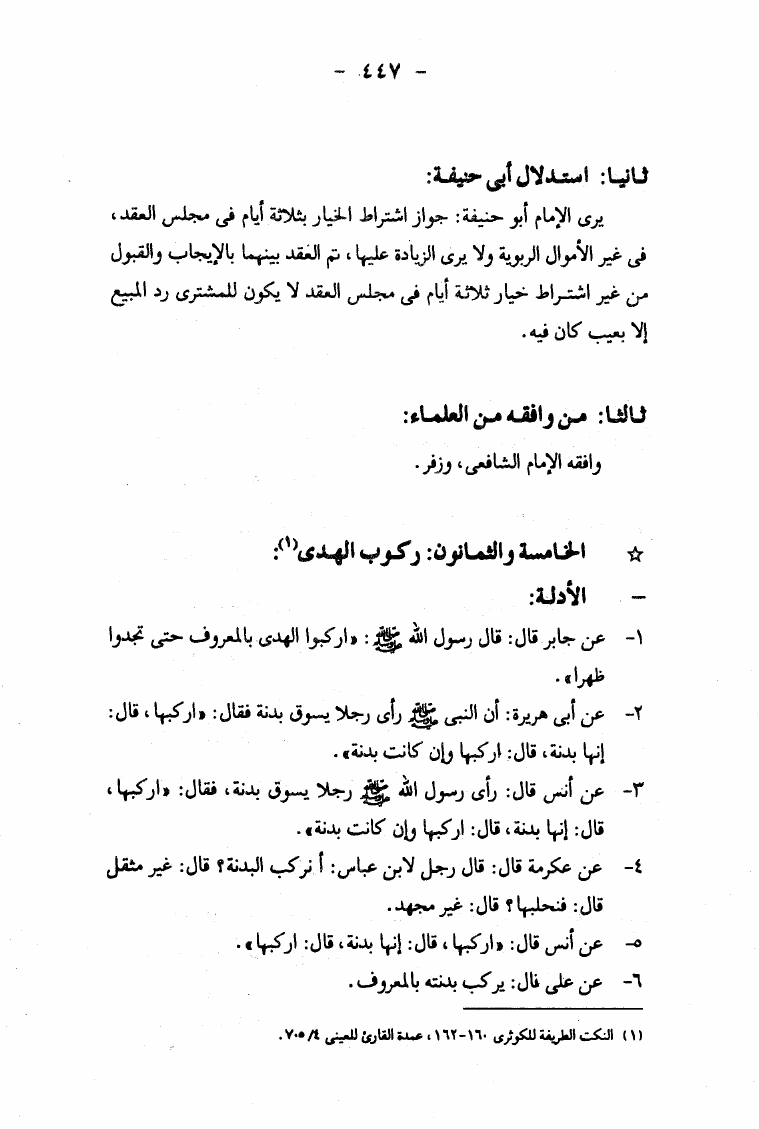 - ٤٤٧ -
ثانيا: استدلال أبى حنيفة:
يرى الإمام أبو حنيفة: جواز اشتراط الخيار بثلاثة أيام فى مجلس العقد،
فى غير الأموال الربوية ولا يرى الزيادة عليها، تم العقد بينهما بالإيجاب والقبول
من غير اشتراط خيار ثلاثة أيام فى مجلس العقد لا يكون للمشترى رد المبيع
إلا بعيب كان فيه.
ثالثا: من وافقه من العلماء:
وافقه الإمام الشافعى، وزفر.
☆ الخامسة والثمانون: ركوب الهدى(١):
- الأدلة:
١- عن جابر قال: قال رسول الله ﷺ: «اركبوا الهدى بالمعروف حتى تجدوا
ظهرا».
٢- عن أبى هريرة: أن النبى ﷺ رأى رجلا يسوق بدنة فقال: «اركبها، قال:
إنها بدنة، قال: اركبها وإن كانت بدنة».
٣- عن أنس قال: رأى رسول الله ﷺ رجلا يسوق بدنة، فقال: «اركبها،
قال: إنها بدنة، قال: اركبها وإن كانت بدنة».
٤- عن عكرمة قال: قال رجل لابن عباس: أ نركب البدنة؟ قال: غير مثقل
قال: فنحلبها؟ قال: غير مجهد.
٥- عن أنس قال: «اركبها، قال: إنها بدنة، قال: اركبها».
٦- عن على فال: يركب بدنته بالمعروف.
(١) النكت الطريفة للكوثرى ١٦٠-١٦٢، عمدة القارئ للعينى ٧٠٥/٤.